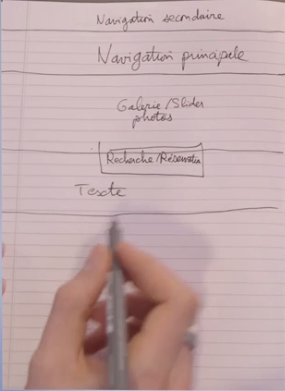 Navigation secondaire
Navigation principale
Galerie/Slider
photos
Recherche/Réservation
Texte